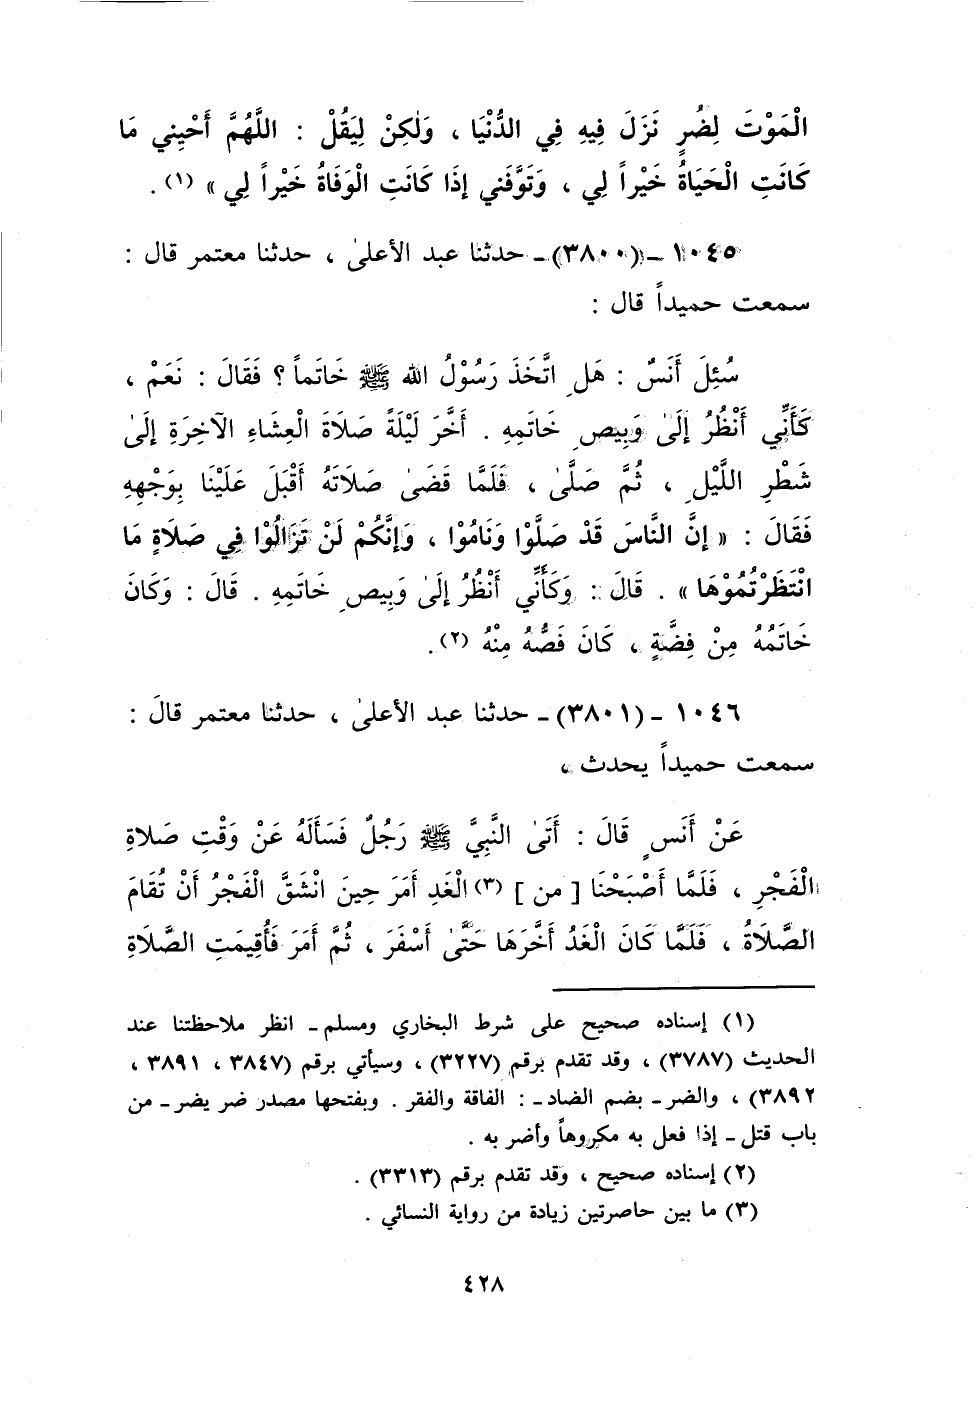 الْمَوْتَ لِضُرٍ نَزَلَ فِيهِ فِي الدُّنْيَا ، وَلٰكِنْ لِيَقُلْ : اللَّهُمَّ أَحْيِنِي مَا
كَانَتِ الْحَيَاةُ خَيْراً لِي ، وَتَوَّفَنِي إذَا كَانَتِ الْوَفَاةُ خَيْراً لِي » (١) .
١٠٤٥ - (٣٨٠٠) - حدثنا عبد الأعلىٰ ، حدثنا معتمر قال :
سمعت حميداً قال :
سُئِلَ أَنَسٌ : هَلِ اتَّخَذَ رَسُوْلُ الله ﷺ خَاتَماً ؟ فَقَالَ : نَعَمْ ،
كَأَنِّي أَنْظُرُ إلَىٰ وَبِيصِ خَاتَمِهِ . أَخَّرَ لَيْلَةً صَلَاةَ الْعِشَاءِ الآخِرَةِ إلَىٰ
شَطْرِ اللَّيْلِ ، ثُمَّ صَلَّىٰ ، فَلَمَّا قَضَىٰ صَلَاتَهُ أَقْبَلَ عَلَيْنَا بِوَجْهِهِ
فَقَالَ : « إنَّ النَّاسَ قَدْ صَلَّوْا وَنَامُوْا ، وَإنَّكُمْ لَنْ تَزَالُوْا فِي صَلَاةٍ مَا
انْتَظَرْتُمُوْهَا » . قَالَ : وَكَأَنِّي أَنْظُرُ إلَىٰ وَبِيصِ خَاتَمِهِ . قَالَ : وَكَانَ
خَاتَمُهُ مِنْ فِضَّةٍ ، كَانَ فَصُّهُ مِنْهُ (٢) .
١٠٤٦ - (٣٨٠١) - حدثنا عبد الأعلىٰ ، حدثنا معتمر قالَ :
سمعت حميداً يحدث ،
عَنْ أَنَسٍ قَالَ : أَتَىٰ النَّبِيَّ ﷺ رَجُلٌ فَسَأَلَهُ عَنْ وَقْتِ صَلاةِ
الْفَجْرِ ، فَلَمَّا أَصْبَحْنَا [ من ] (٣) الْغَدِ أَمَرَ حِينَ انْشَقَّ الْفَجْرُ أَنْ تُقَامَ
الصَّلَاةُ ، فَلَمَّا كَانَ الْغَدُ أَخَّرَهَا حَتَّىٰ أَسْفَرَ ، ثُمَّ أَمَرَ فَأُقِيمَتِ الصَّلَاةِ
(١) إسناده صحيح على شرط البخاري ومسلم - انظر ملاحظتنا عند
الحديث (٣٧٨٧) ، وقد تقدم برقم (٣٢٢٧) ، وسيأتي برقم (٣٨٤٧ ، ٣٨٩١ ،
٣٨٩٢) ، والضر - بضم الضاد - : الفاقة والفقر . وبفتحها مصدر ضر يضر - من
باب قتل - إذا فعل به مكروهاً وأضر به .
(٢) إسناده صحيح ، وقد تقدم برقم (٣٣١٣) .
(٣) ما بين حاصرتين زيادة من رواية النسائي .
٤٢٨